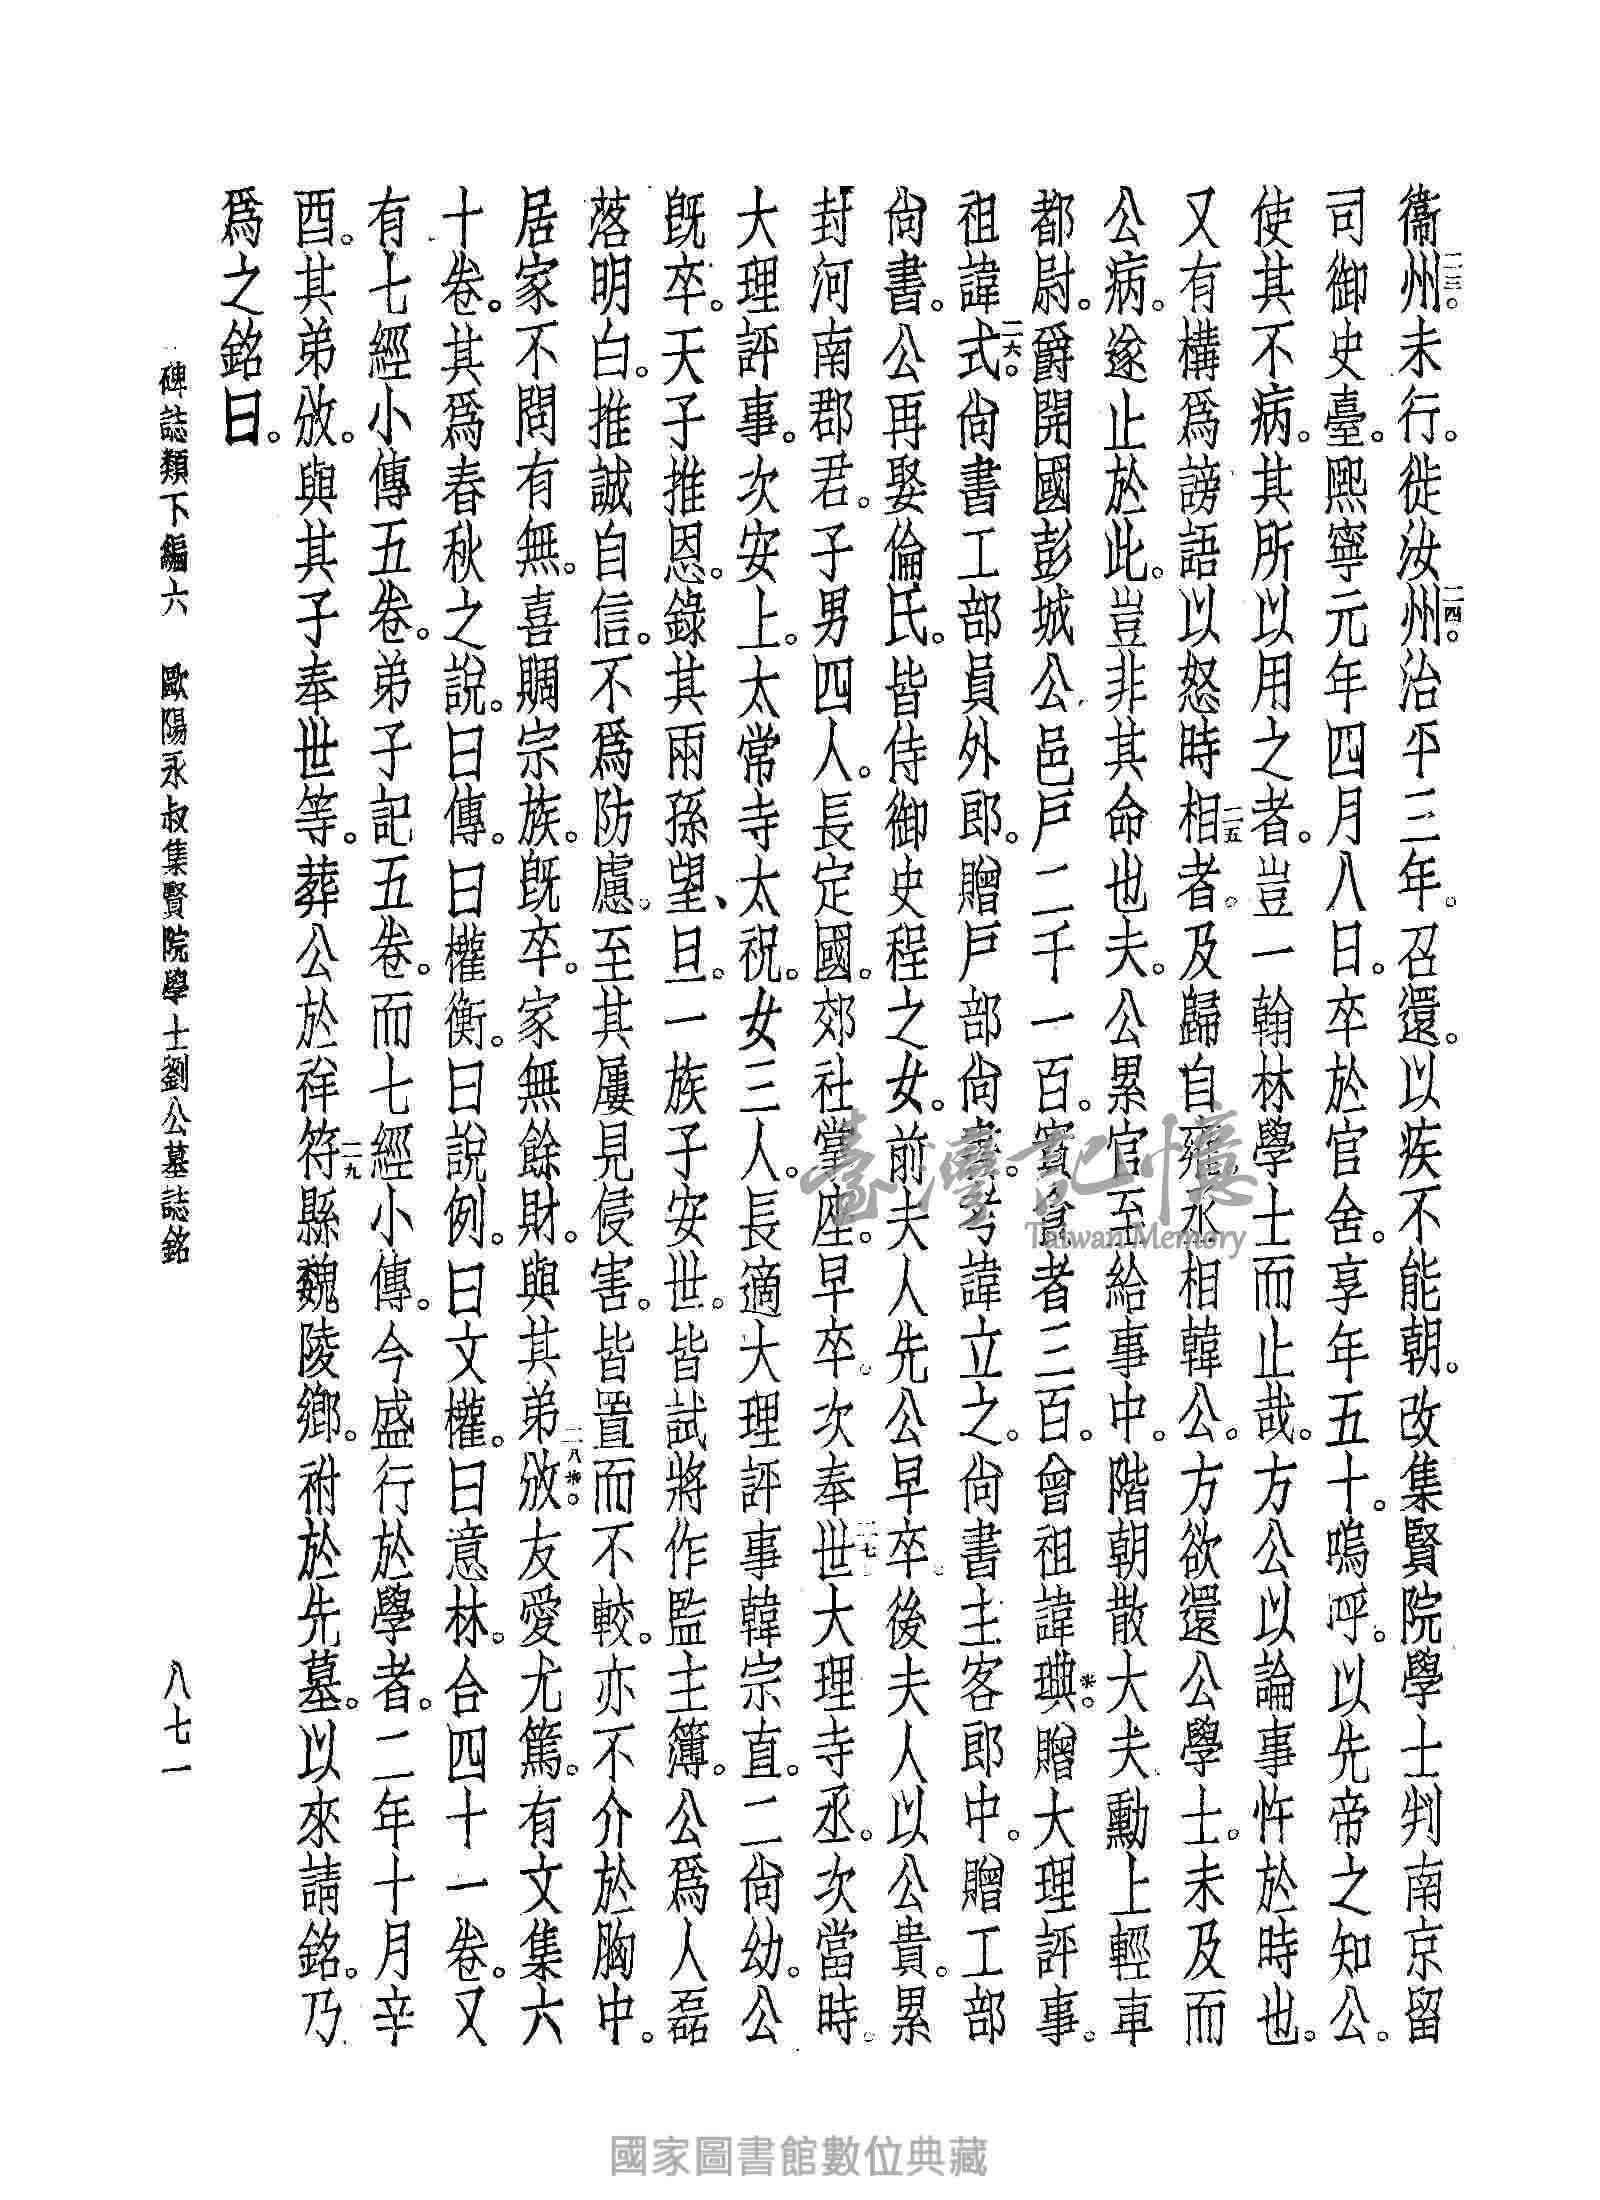 衞州二三。未行。徙汝州二四。治平三年。召還。以疾不能朝。改集賢院學士判南京留
司御史臺。熙寧元年四月八日。卒於官舍。享年五十。嗚呼。以先帝之知公。
使其不病。其所以用之者。豈一翰林學士而止哉。方公以論事忤於時也。
又有構爲謗語以怒時相二五者。及歸自雍。丞相韓公。方欲還公學士。未及而
公病。遂止於此。豈非其命也夫。公累官至給事中。階朝散大夫。勳上輕車
都尉。爵開國彭城公。邑戶二千一百。實食者三百。曾祖諱璵*。贈大理評事。
祖諱式二六。尙書工部員外郎。贈戶部尙書。考諱立之。尙書主客郎中。贈工部
尙書。公再娶倫氏。皆侍御史程之女。前夫人先公早卒。後夫人以公貴。累
封河南郡君。子男四人。長定國。郊社掌座。早卒。次奉世二七。大理寺丞。次當時。
大理評事。次安上。太常寺太祝。女三人。長適大理評事韓宗直。二尙幼。公
旣卒。天子推恩。錄其兩孫望、旦。一族子安世。皆試將作監主簿。公爲人磊
落明白。推誠自信。不爲防慮。至其屢見侵害。皆置而不較。亦不介於胸中。
居家不問有無。喜賙宗族。旣卒。家無餘財。與其弟攽二八*。友愛尤篤。有文集六
十卷。其爲春秋之說。曰傳。曰權衡。曰說例。曰文權。曰意林。合四十一卷。又
有七經小傳五卷。弟子記五卷。而七經小傳。今盛行於學者。二年十月辛
酉。其弟攽。與其子奉世等。葬公於祥符二九縣魏陵鄉。祔於先墓。以來請銘。乃
爲之銘曰。
碑誌類下編六 歐陽永叔集賢院學士劉公墓誌銘 八七一
臺灣記憶
Taiwan Memory
國家圖書館數位典藏